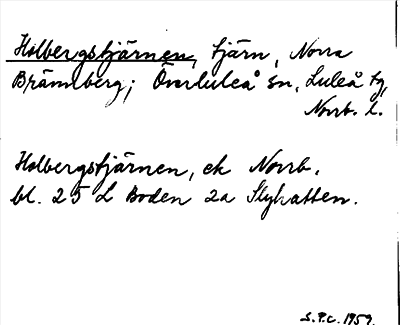 Holbergstjärnen, tjärn, Norra
Brännberg; Överluleå sn, Luleå tg,
Norrb. l.
Holbergstjärnen, ek Norrb.
bl. 25 L Boden 2a Slyhatten.
S.P.C. 1959.